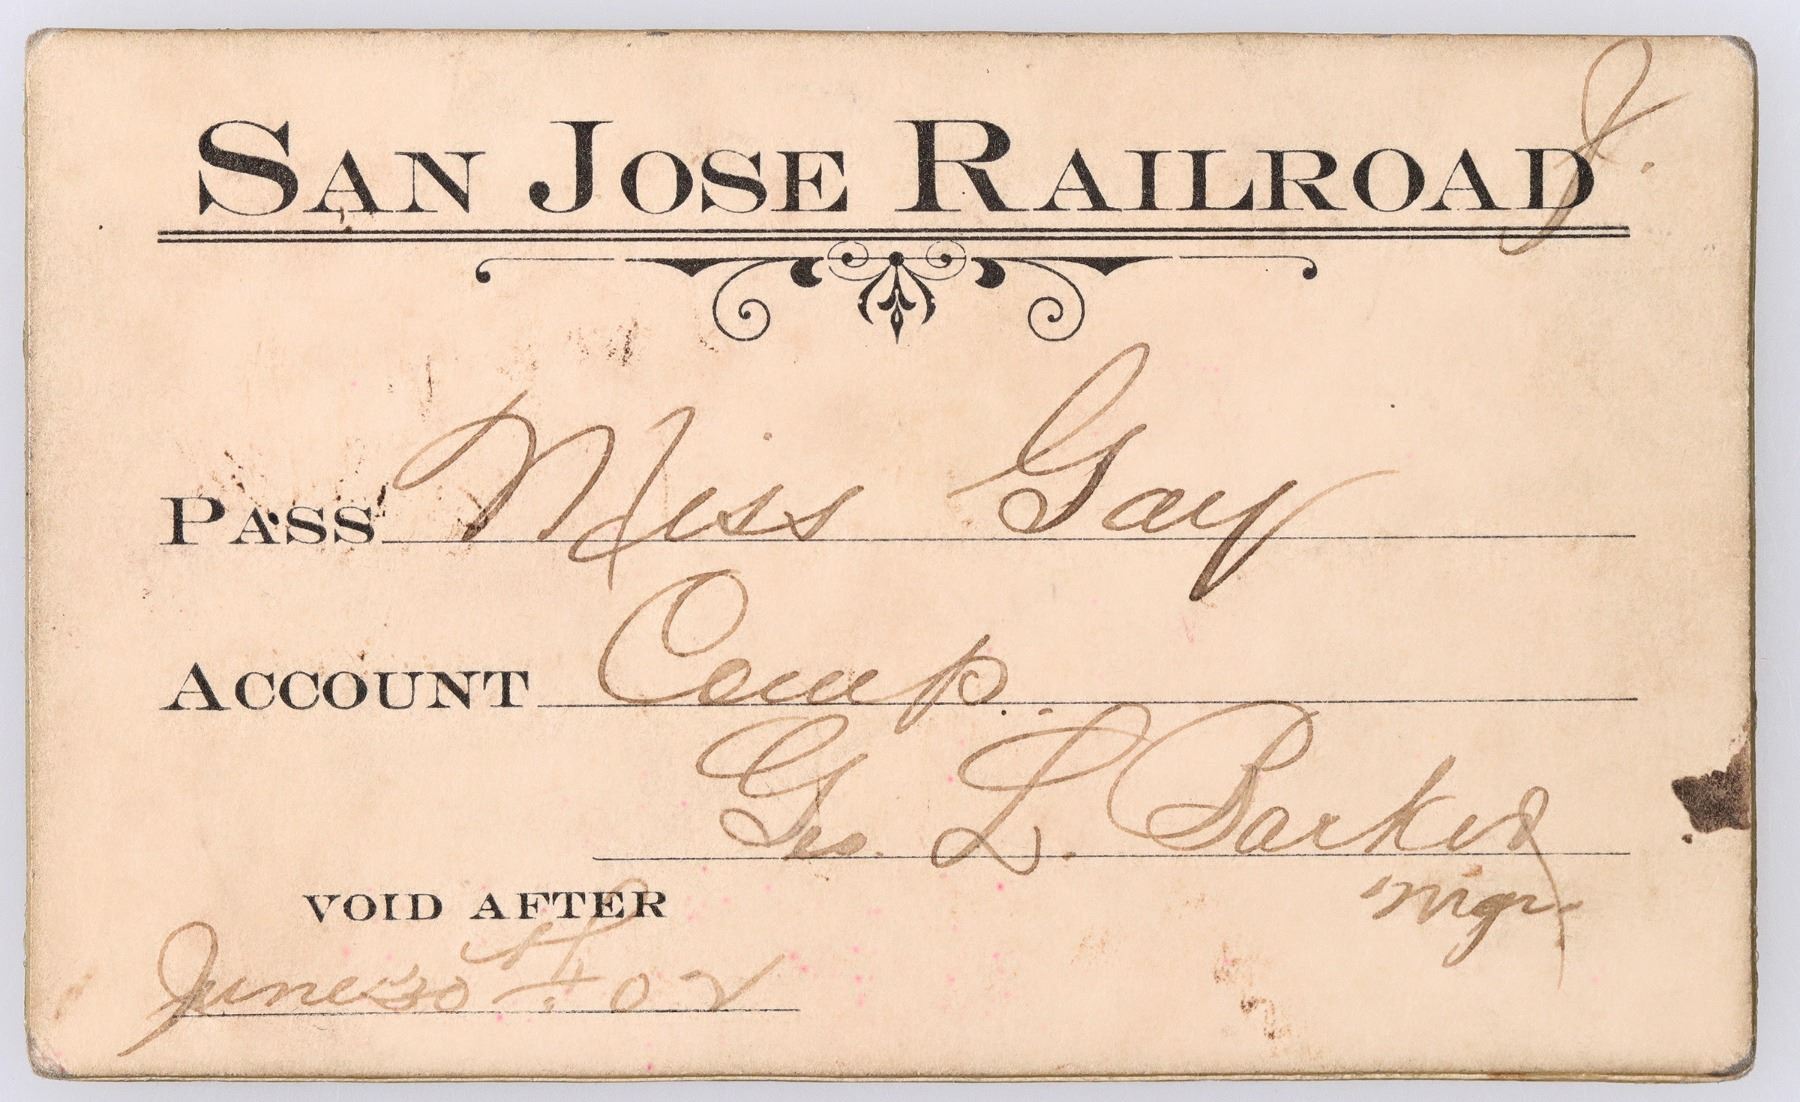 SAN JOSE RAILROAD
J.
PASS Miss Gay
ACCOUNT Comp.
Geo. L. Barker
Mgr.
VOID AFTER
June 30th 02